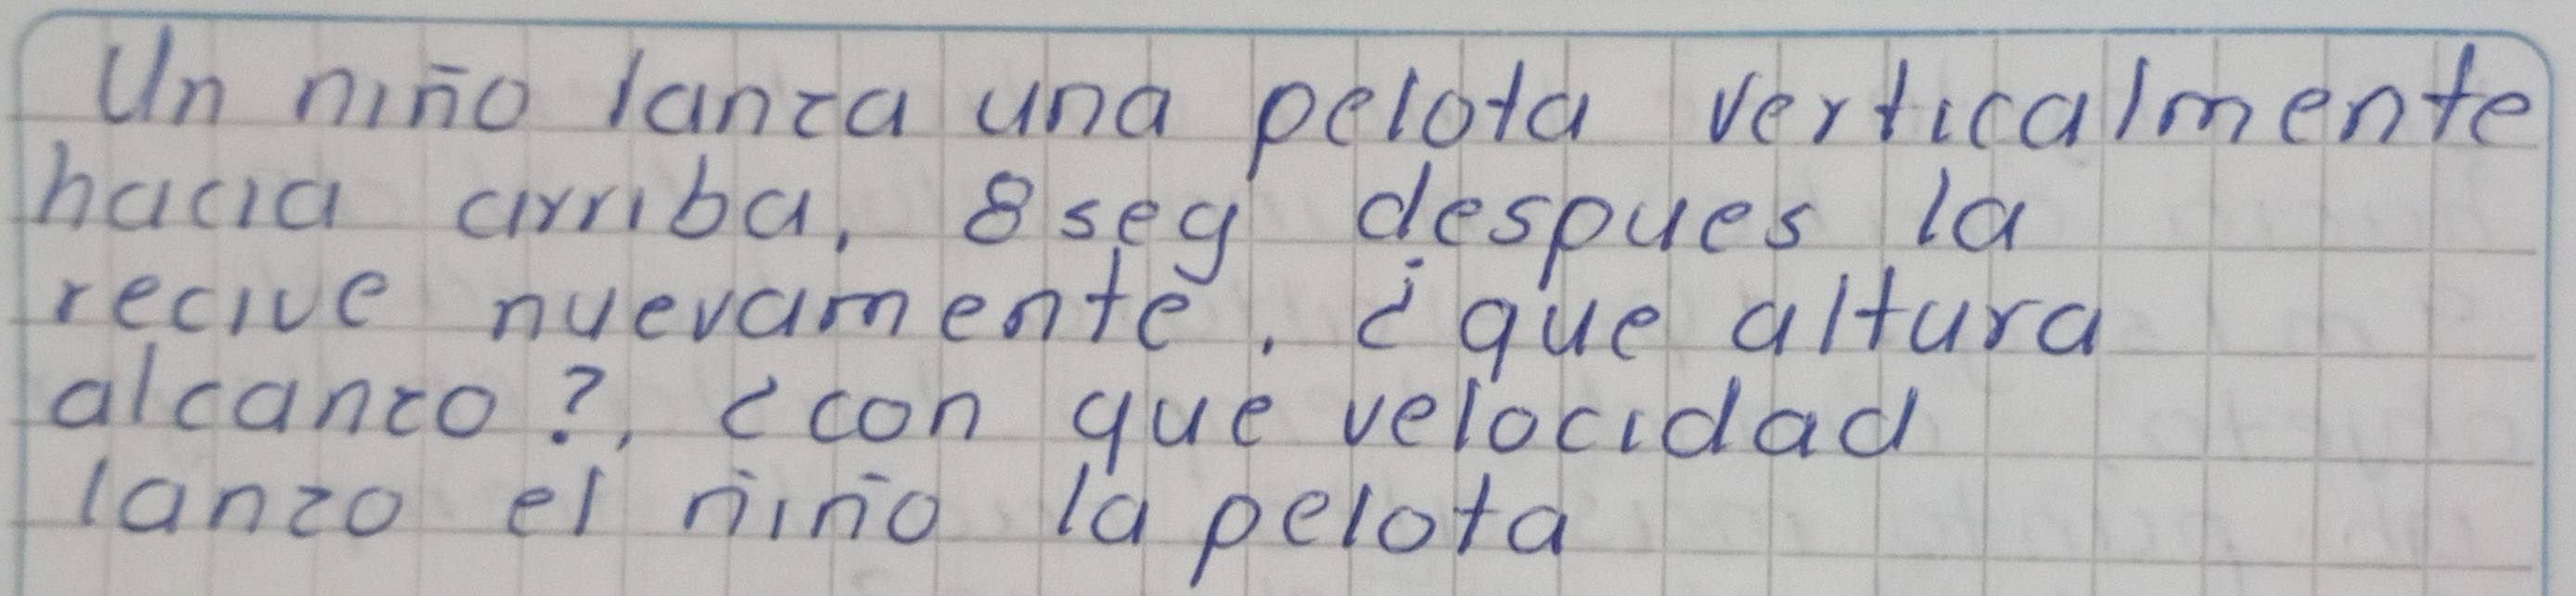 Un niño lanza una pelota verticalmente
hacia arriba, 8seg despues la
recive nuevamente. ¿que altura
alcanzo?, ¿con que velocidad
lanzo el niño la pelota